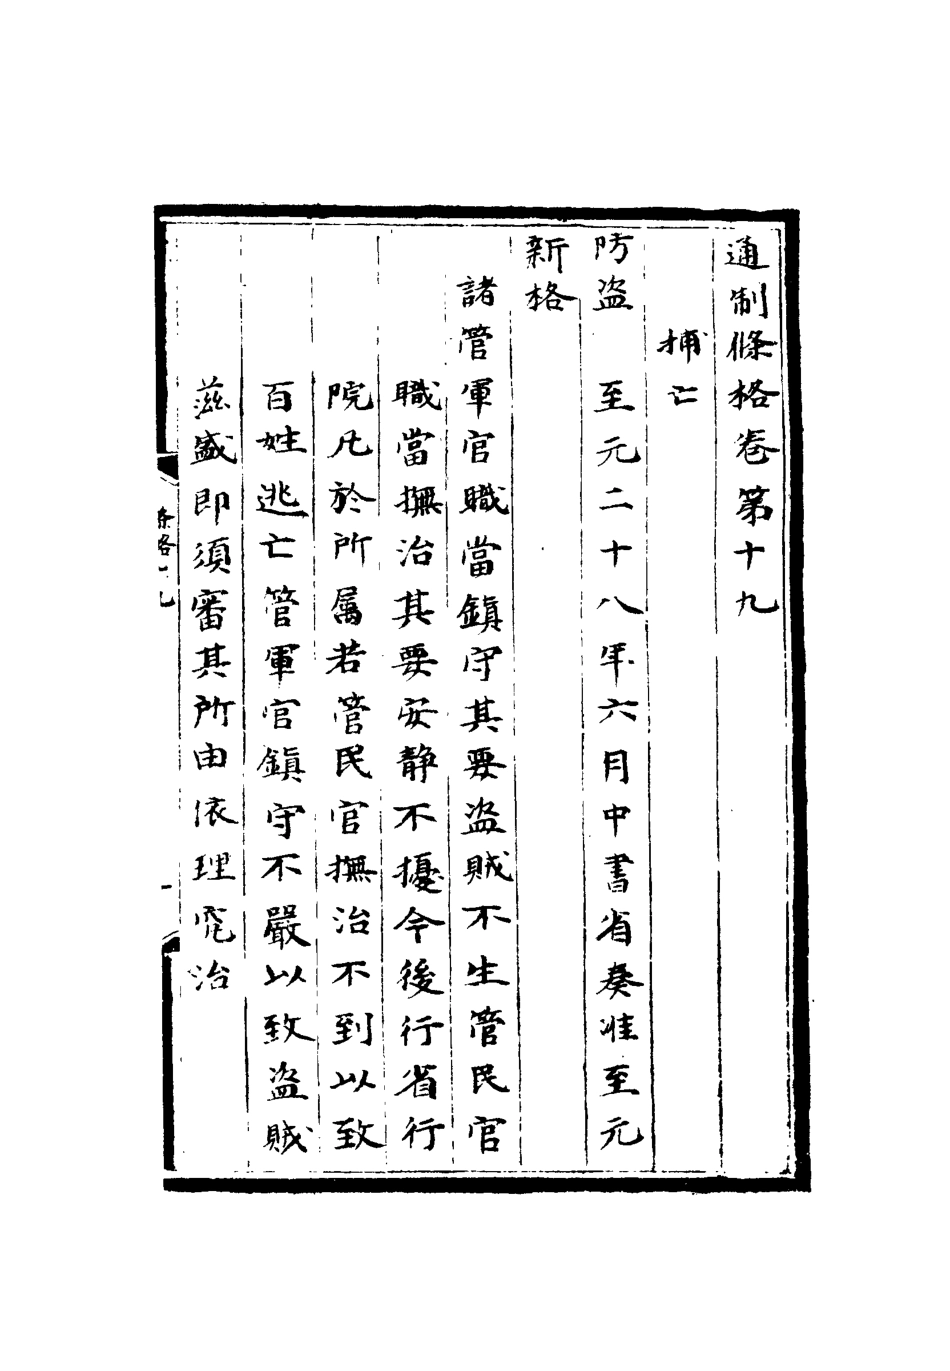 通制條格卷第十九
捕亡
防盜　至元二十八年六月中書省奏准至元
新格
諸管軍官職當鎮守其要盗賊不生管民官
職當撫治其要安靜不擾今後行省行
院凡於所属若管民官撫治不到以致
百姓逃亡管軍官鎮守不嚴以致盗賊
滋盛即須審其所由依理究治
條格十九
一